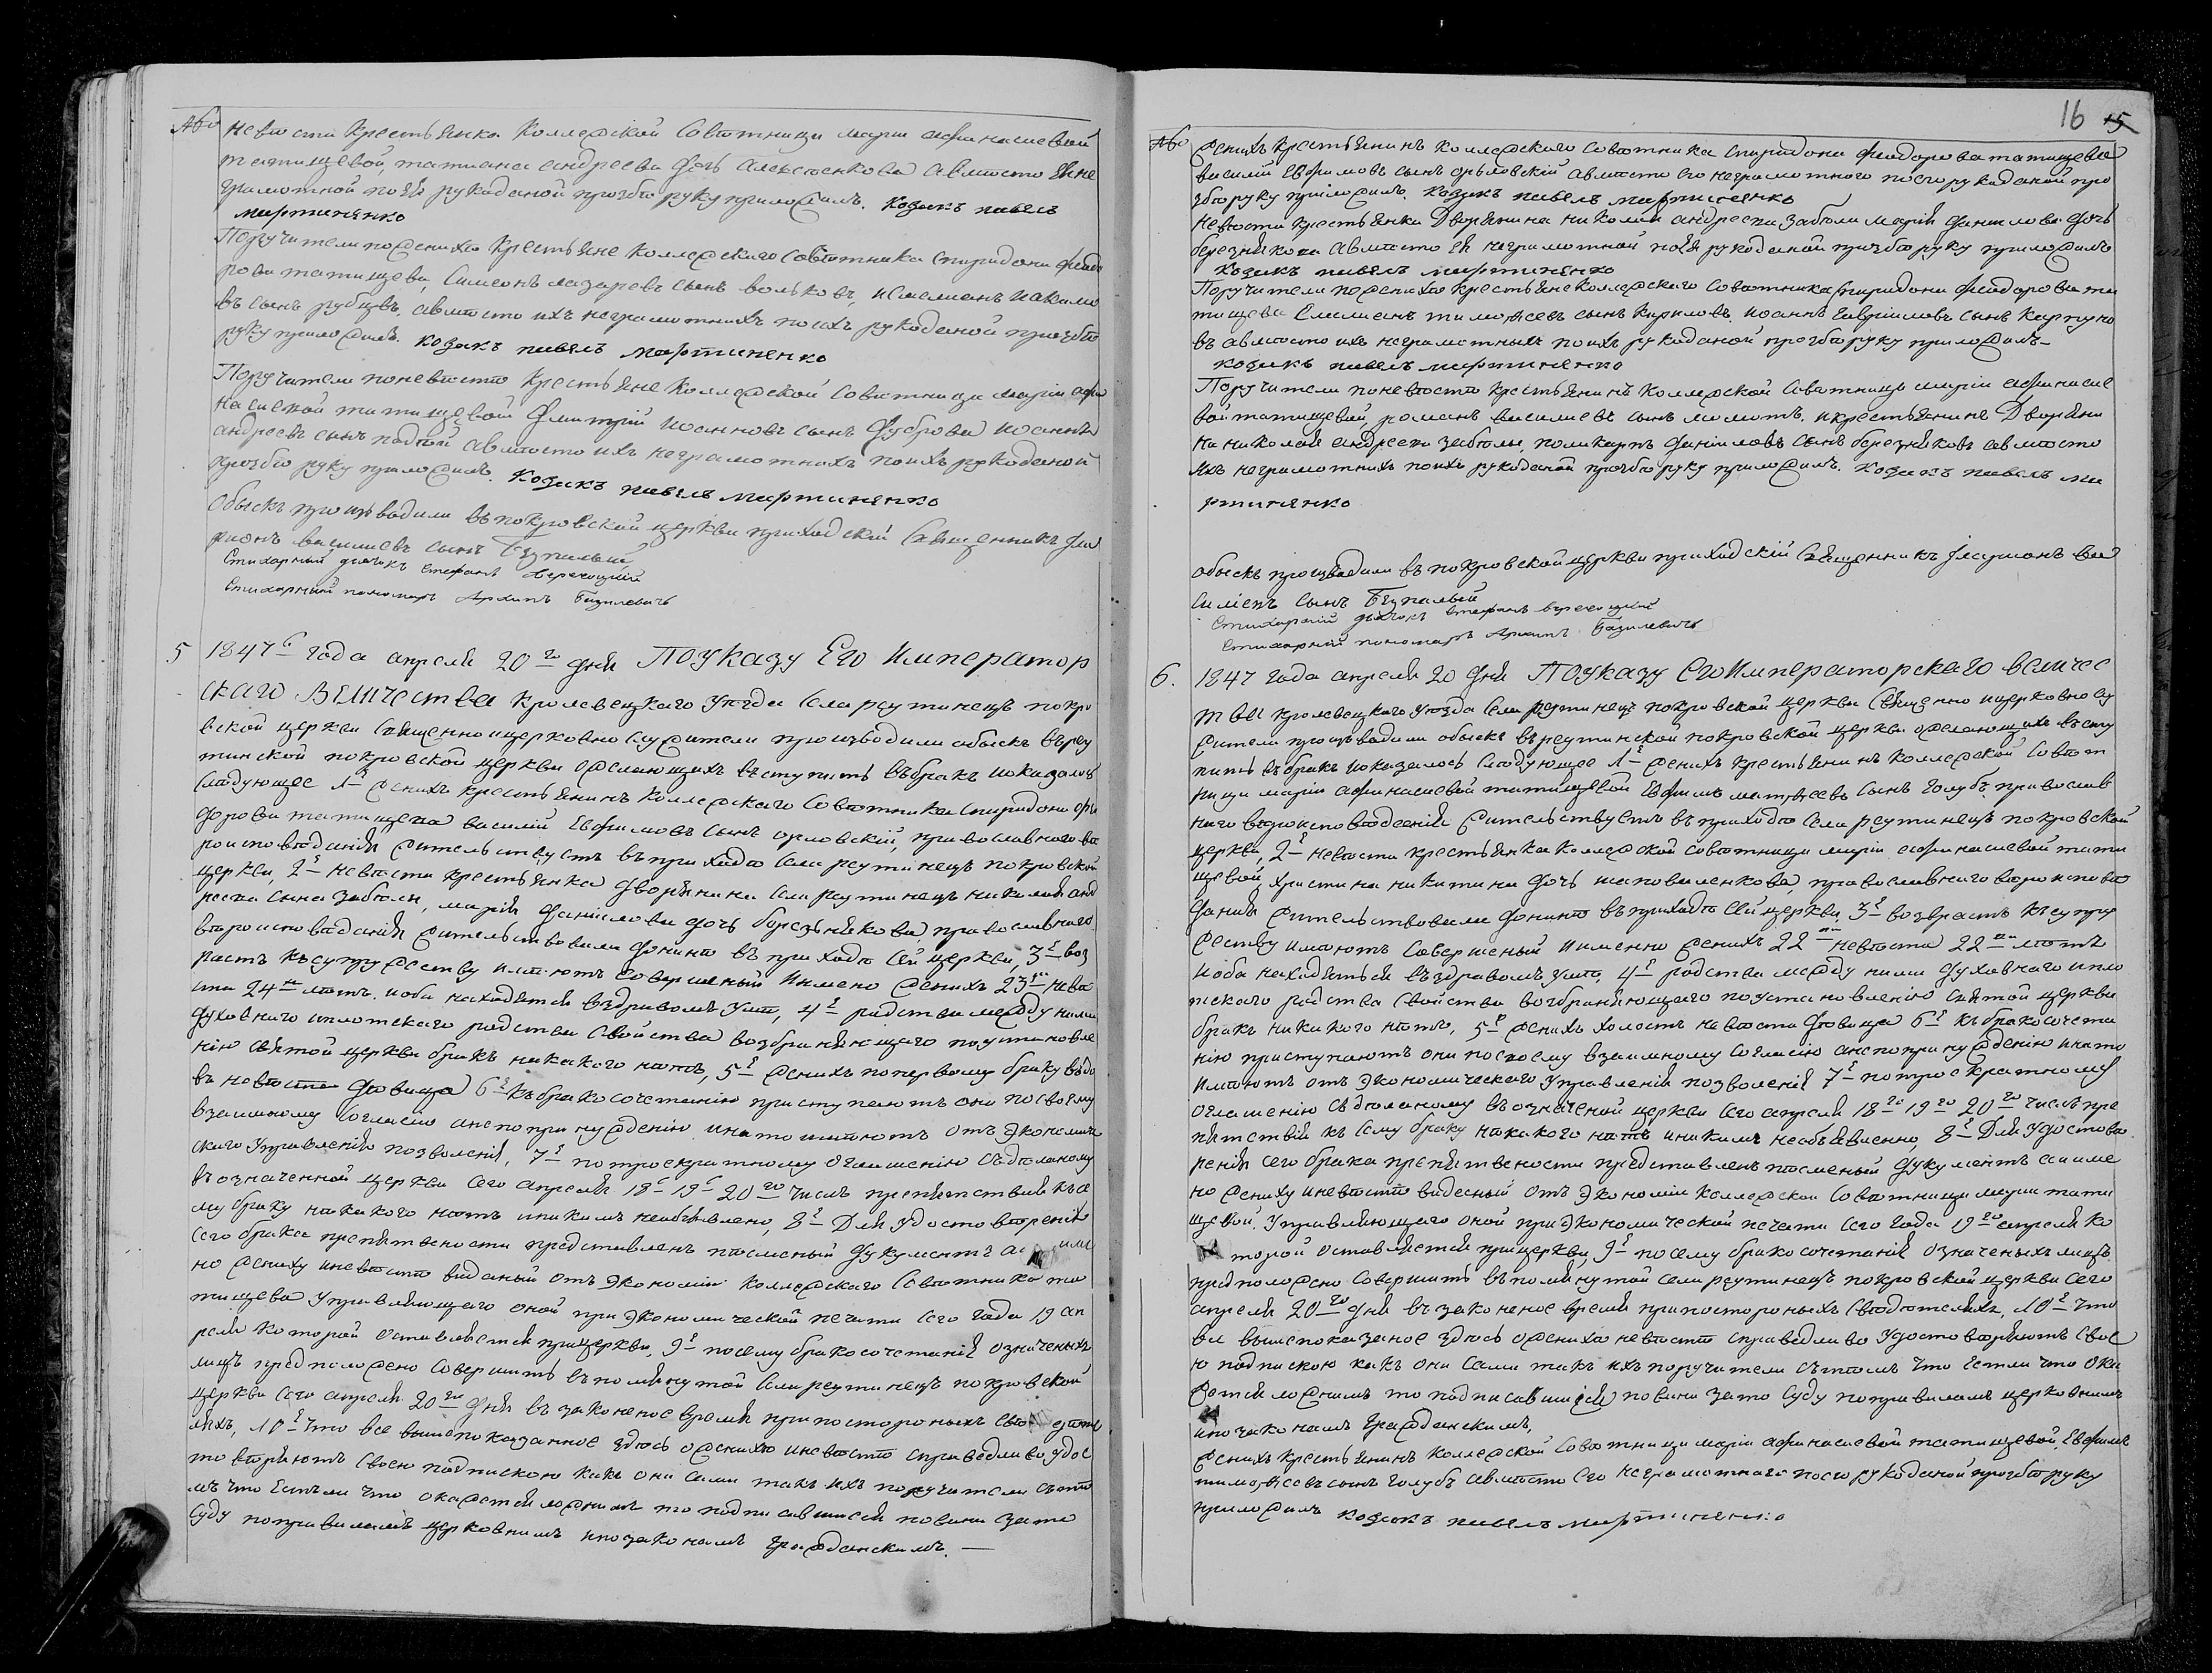 №о невѣста крестьянка Коллежской Совѣтницы марiи афанасiевой
татищевой, татiана андреева дочь Алексѣенкова авмѣсто Ея не
грамотной поея рукоданой прозбѣ руку приложилъ. козакъ павелъ
мартиненко
Поручители поженихѣ крестьяне коллежскаго Совѣтника спиридона феодо
рова татищева, Симеонъ лазаревъ сынъ вольковъ, иемелианъ иакимо
въ сынъ рубцовъ, авмѣсто ихъ неграмотнихъ поихъ рукоданой прозбѣ
руку приложилъ. козакъ павелъ мартиненко
Поручители поневѣстѣ крестьяне Коллежской Совѣтници марiи афа
насiевой татищевой Дмитрiй иоанновъ сынъ Дуброва иоаннъ
андреевъ сынъ авмѣсто ихъ неграмотнихъ поихъ рукоданой
прозбѣ руку приложилъ. козакъ павелъ мартиненко
Обыскъ производили въ покровской церкви приходскiй Священникъ Ила
рионъ василиевъ сынъ Безпалый
Стихарный дьячокъ Стефанъ Вересоцкiй
Стихарный пономарь Архипъ Базилевичъ
5 1847г года апреля 20го дня ПОУКАЗУ ЕГО Император
скаго Величества кролевецкаго уезда села реутинецъ покро
вской церкви Священно ицерковно служители производили обыскъ вьреу
тинской покровской церкви ожелающихъ вступить въбракъ иоказалось
следующее 1е женихъ крестьянинъ коллежскаго Совѣтника Спиридона фео
дорова татищева василiй Ефимовъ сынъ орловскiй, православнаго вѣ
роисповѣданiя жительствуетъ въприходѣ села реутинецъ покровской
церкви, 2е невѣста крестьянка дворянина села реутинецъ николая анд
реева сына забѣлы, марiя данiилова дочь березнякова православнаго
вѣроисповѣданiя жительствовала донинѣ въ приходѣ сей церкви, 3е воз
растъ късупружеству имѣютъ совершеный имено женихъ 23 неве
ста 24 лѣтъ. иоба находятся въздравомъ умѣ, 4е родства между ними
духовнаго иплотскаго родства свойства возбраняющаго поустановле
нiю святой церкви бракъ никакого нѣтъ, 5е женихъ попервому браку вдо
въ невѣста дѣвица 6е къбракосочетанiю приступаютъ они посвоему
взаимному согласiю анепопринужденiю инато имѣютъ отъ Экономиче
скаго Управленiя позволенiя, 7е потроекратному оглашенiю сьдѣланому
въозначенной церкви сего апреля 18г 19г 20го числъ препятствия късе
му браку никакого нѣтъ иникимъ необъявлено, 8е Для удостоверенiя
сего брака препятвености представленъ писменый Дукументъ а име
но жениху иневѣстѣ виданый отъ Экономiи коллежскаго Совѣтника та
тищева управляющаго оной приэкономической печати сего года 19 ап
реля которой оставляется прицеркви, 9е посему бракосочетанiя означеныхъ
лицъ предположено совершить въ помянутой села реутинецъ покровской
церкви сего апреля 20го дня въ законеное время припостороныхъ сви дѣте
ляхъ, 10е что все вышепоказанное здѣсь оженихѣ иневѣстѣ справедливо, удос
товѣряютъ своею подпискою какъ они сами такъ ихъ поручители сьтѣ
мъ что естьли что окажется ложнимъ то подписавшися повини зато
суду поправиламъ церковнимъ ипозаконамъ гражданскимъ. —
16 15
№о женихъ крестьянинъ коллежскаго Совѣтника Спиридона феодорова татищева
василiй Ефимовъ сынъ орьловскiй авмѣсто Его неграмотного поего рукоданой про
збѣ руку приложилъ. козакъ павелъ мартиненко
невѣста крестьянка Дворянина николая андреева Забѣли марiя данилова дочь
березнякова авмѣсто Ея неграмотной поея рукоданой прозбѣ руку приложилъ
козакъ павелъ мартиненко
Поручители поженихѣ крестьяне коллежскаго Совѣтника Спиридона феодорова та
тищева Емелианъ тимофеевъ сынъ кириловъ. иоаннъ Гаврииловъ сынъ карпухо
въ авмѣсто ихъ неграмотныхъ поихъ рукоданой прозбѣ руку приложилъ-
козакъ павелъ мартиненко
Поручители поневѣстѣ крестьянинъ Коллежской Совѣтници марiи афанасие
вой татищевой, романъ василиевъ сынъ мамотъ. икрестьянинъ Дворяни
на николая андреева забѣлы, поликарпъ данiиловъ сынъ березняковъ авмѣсто
ихъ неграмотнихъ поихъ рукоданой прозбѣ руку приложилъ. козакъ павелъ ма
ртиненко
обыскъ производили въ покровской церкви приходскiй Священникъ Иларионъ ва
силiевъ сынъ Безпалый
Стихарный дьячокъ Стефанъ Вересоцкiй
Стихарный пономарь Архипъ Базилевичъ
6. 1847 года апреля 20 дня ПОУКАЗУ ЕГО Императорскаго величес
тва кролевецкаго уезда села реутинецъ покровской церкви Священно ицерковнослу
жители производили обыскъ въреутинской покровской церкви ожелающихъ всту
пить въбракъ иоказалось следующее 1е женихъ крестьянинъ коллежской Совѣт
ници марiи афанасиевой татищевой Ефимъ матфеевъ сынъ Голубъ православ
наго вѣроисповѣданiя жительствуетъ въприходѣ села реутинецъ покровской
церкви, 2е невѣста крестьянка коллежской совѣтници марiи афанасиевой тати
щевой христина никитина дочь шаповаленкова, православнаго вѣроисповѣ
данiя жительствовала донинѣ въприходѣ сей церкви, 3е возврастъ късупру
жеству имѣютъ совершеный именно женихъ 22 невѣста 22 лѣтъ
иоба находяться въздравомъ умѣ, 4е родства между ними духовнаго ипло
тскаго родства свойства возбраняющаго поустановленiю святой церкви
бракъ никакого нѣтъ, 5е женихъ холостъ невѣста дѣвица 6е къбракосочета
нiю приступаютъ они посвоему взаимному согласiю анепопринужденiю инато
имѣютъ отъ экономическаго управленiя позволенiя 7е потроекратному
оглашенiю сьдѣланому въозначеной церкви сего апреля 18го 19го 20го числъ пре
пятствiй къ сему браку никакого нѣтъ иникимъ необъявленно, 8е Для удостове
ренiя сего брака препятвености представленъ писменый Дукументъ аиме
но жениху иневѣстѣ виданый отъ экономiи коллежской Совѣтници марiи тати
щевой. управляющаго оной приэкономической печати сего года 19го апреля ко
торой оставляется прицеркви, 9е посему бракосочетанiя означеныхъ лицъ
предположено совершить въпомянутой села реутинецъ покровской церкви сего
апреля 20го дня въ законеное время припостороныхъ свѣдѣтеляхъ, 10е что
все вышепоказаное здѣсь оженихѣ невѣстѣ справедливо удостовѣряютъ свое
ю подпискою какъ они сами такъ ихъ поручители сьтѣмъ что естли что ока
жется ложнимъ то подписавшися повини зато суду поправиламъ церковнимъ
ипозаконамъ гражданскимъ,
женихъ крестьянинъ коллежской Совѣтници марiи афанасиевой татищевой, Ефимъ
тимофеевъ сынъ голубъ авмѣсто его неграмотнаго поего рукоданой прозбѣ руку
приложилъ козакъ павелъ мартиненко